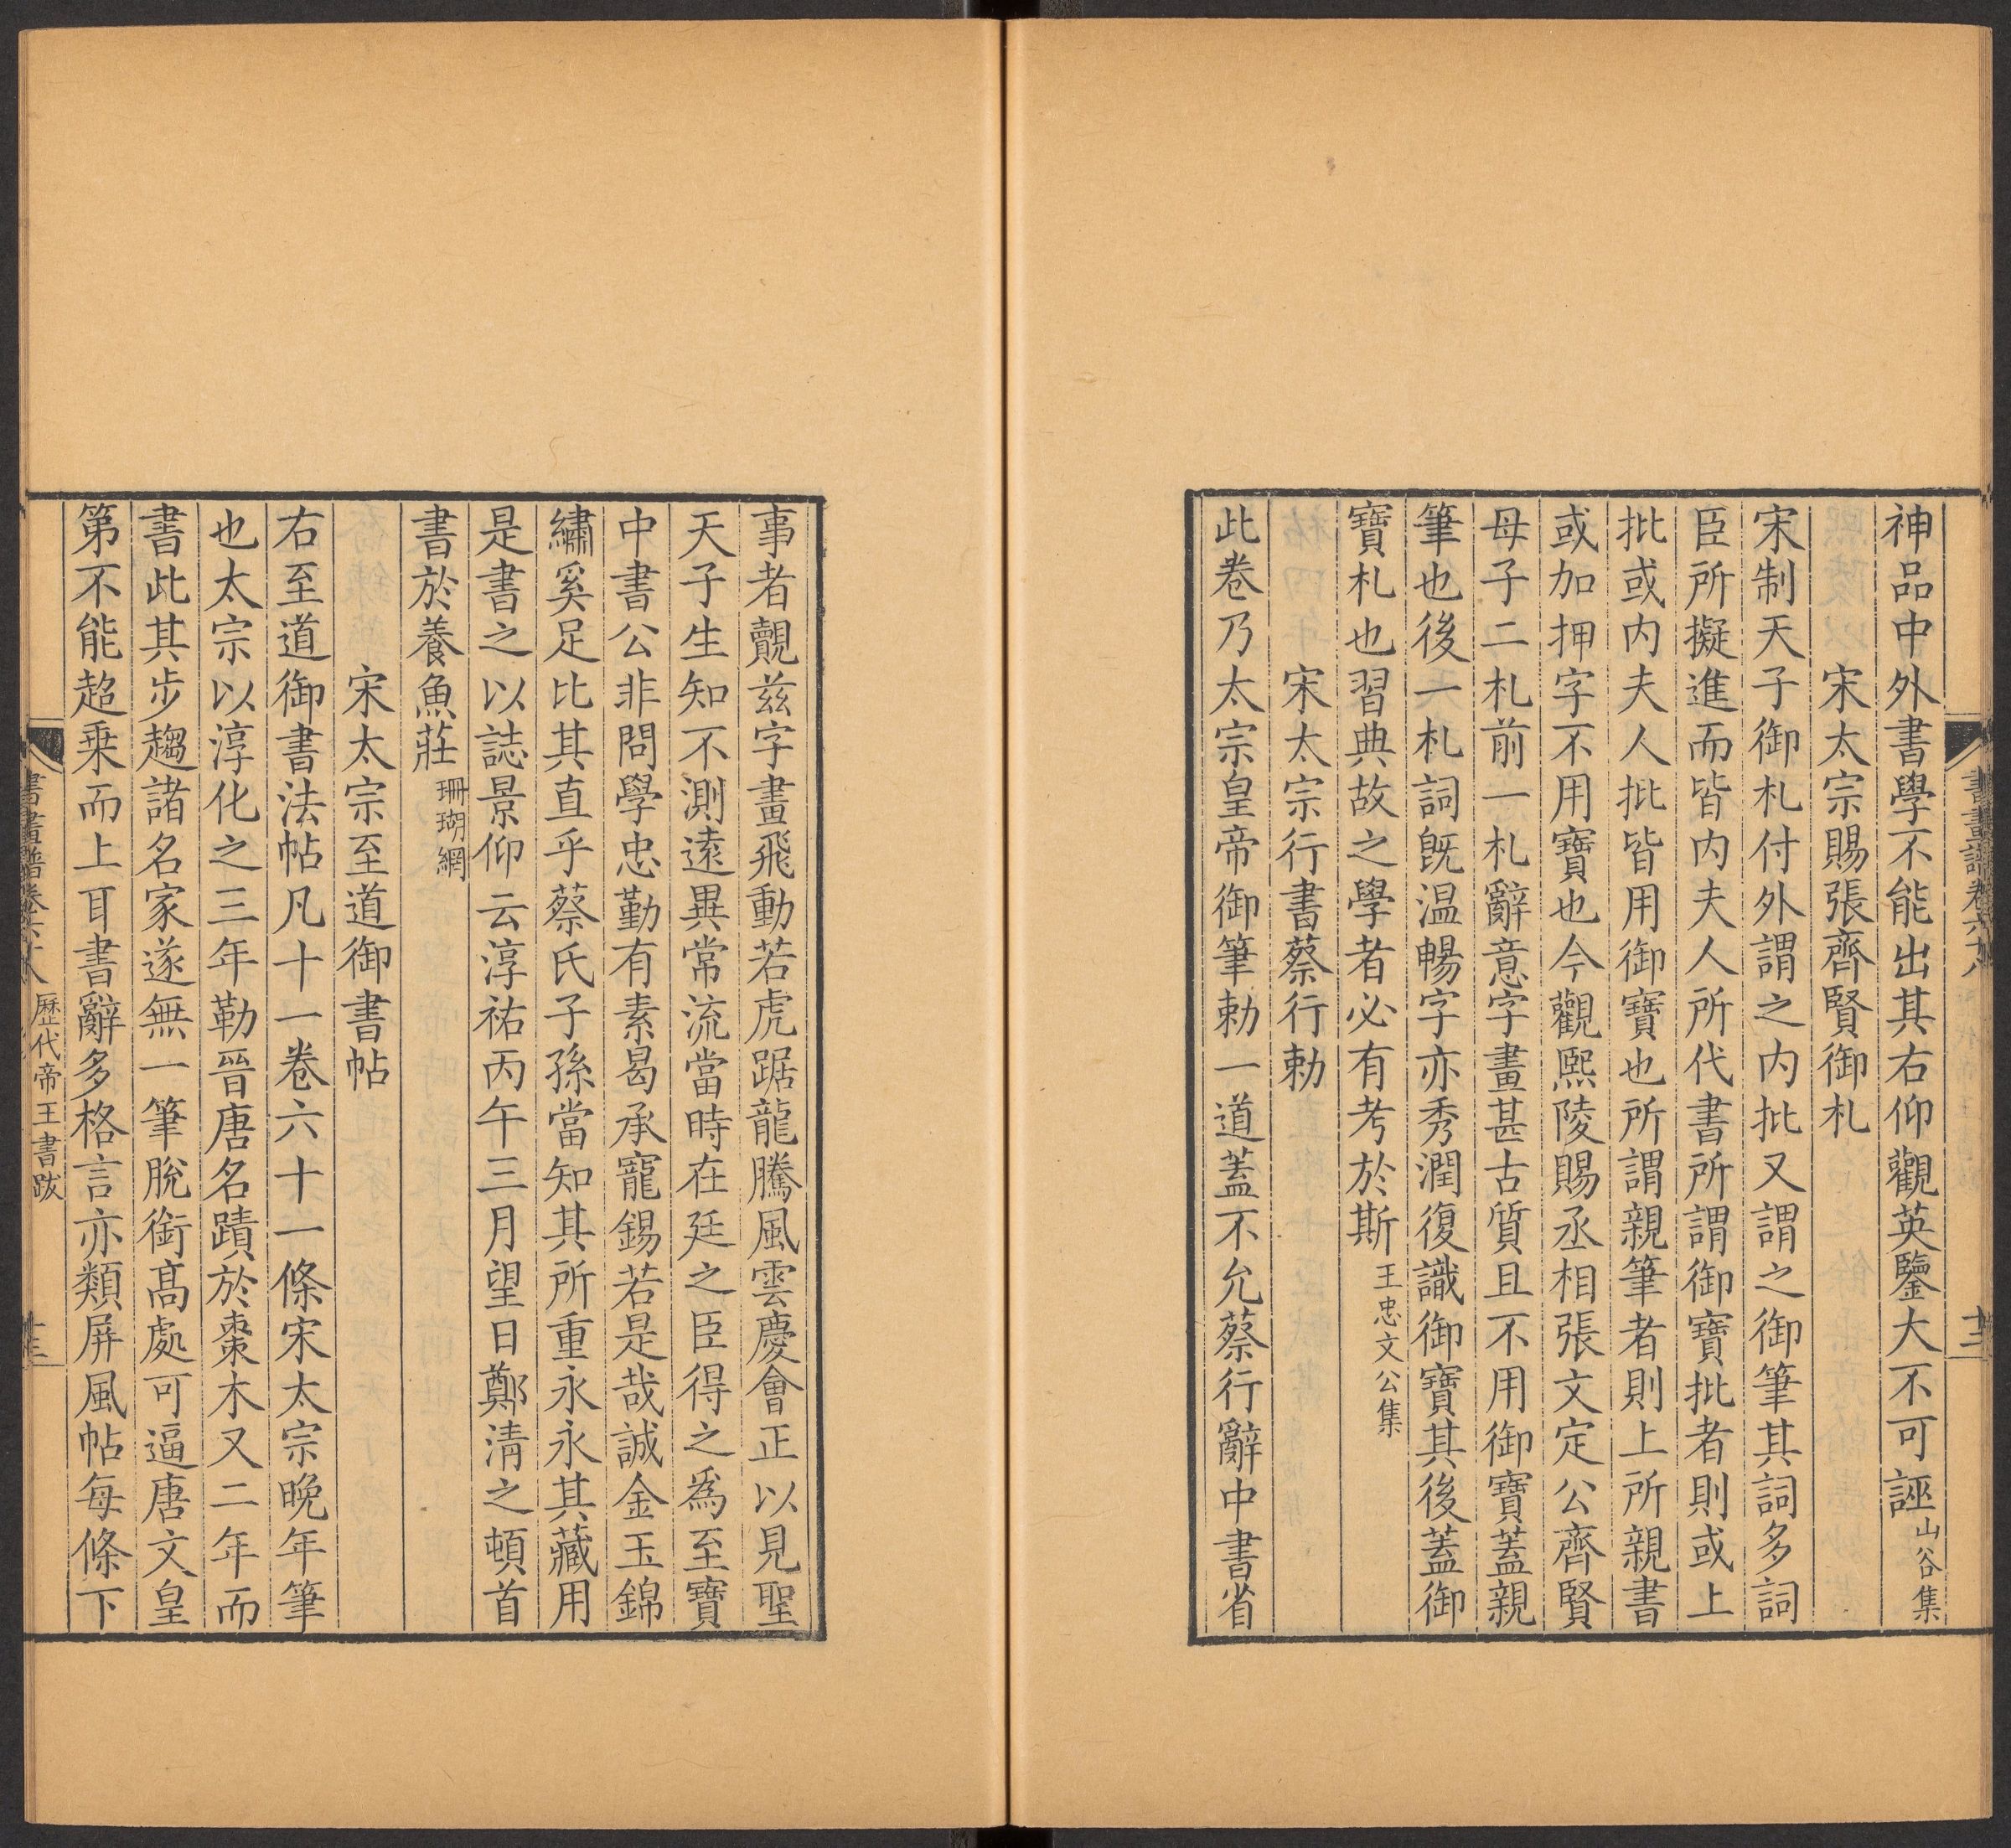 神品中外書學不能出其右仰觀英鑒大不可誣山谷集
宋太宗賜張齊賢御札
宋制天子御札付外謂之内批又謂之御筆其詞多詞
臣所擬進而皆内夫人所代書所謂御寶批者則或上
批或内夫人批皆用御寶也所謂親筆者則上所親書
或加押字不用寶也今觀熙陵賜丞相張文定公齊賢
母子二札前一札辭意字畫甚古質且不用御寶蓋親
筆也後一札詞旣温暢字亦秀潤復識御寶其後蓋御
寶札也習典故之學者必有考於斯王忠文公集
宋太宗行書蔡行勅
此卷乃太宗皇帝御筆勅一道蓋不允蔡行辭中書省
事者覿兹字畫飛動若虎踞龍騰風雲慶會正以見聖
天子生知不測遠異常流當時在廷之臣得之爲至寶
中書公非問學忠勤有素曷承寵錫若是哉誠金玉錦
繡奚足比其直乎蔡氏子孫當知其所重永永其藏用
是書之以誌景仰云淳祐丙午三月望日鄭清之頓首
書於養魚莊珊瑚網
宋太宗至道御書帖
右至道御書法帖凡十一卷六十一條宋太宗晚年筆
也太宗以淳化之三年勒晉唐名蹟於棗木又二年而
書此其步趨諸名家遂無一筆脫銜高處可逼唐文皇
第不能超乘而上耳書辭多格言亦類屏風帖每條下
書畫譜卷六十八
歷代帝王書跋
十三